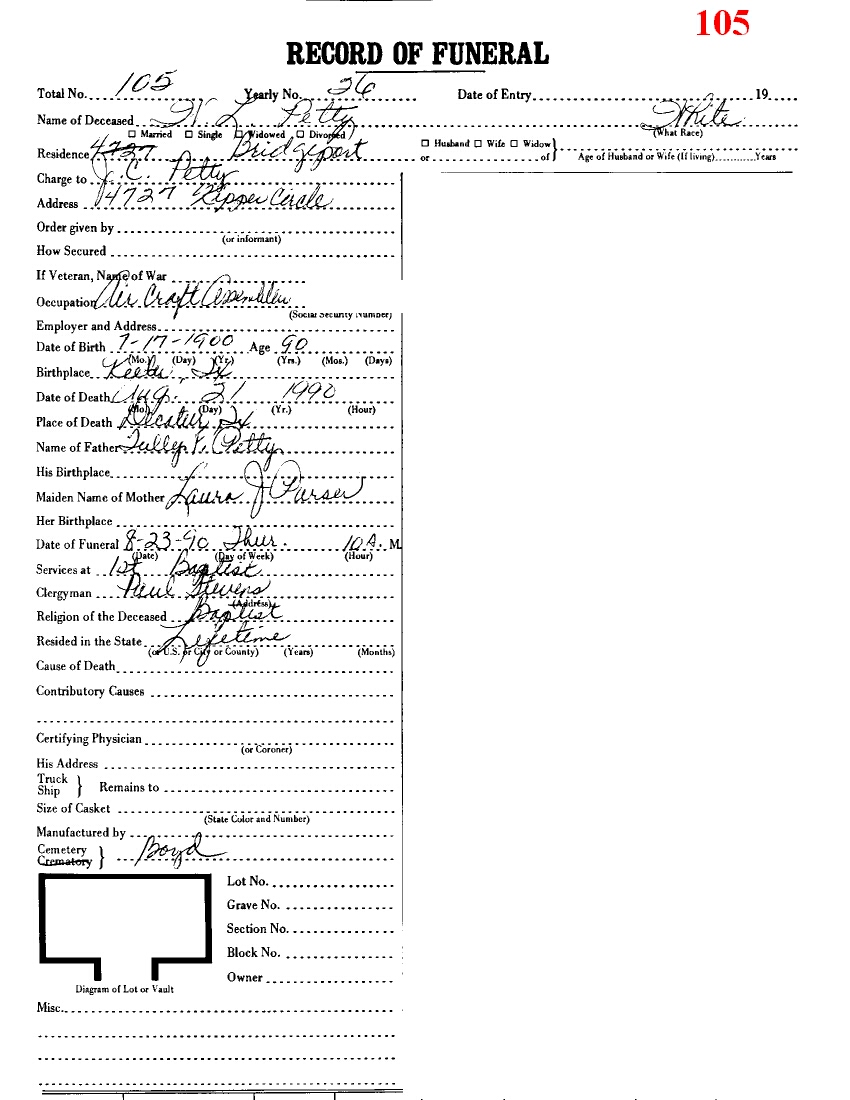 105
RECORD OF FUNERAL
Total No. 105 Yearly No. 26 Date of Entry 19
Name of Deceased Petty White
☐ Married ☐ Single ☐ Widowed ☐ Divorced (What Race)
Residence 4727 Bridgeport ☐ Husband ☐ Wife ☐ Widow
or of Age of Husband or Wife (If living) Years
Charge to J. C. Petty
Address 4727 Zipper Circle
Order given by
(or informant)
How Secured
If Veteran, Name of War
Occupation Air Craft Assembler
(Social Security Number)
Employer and Address
Date of Birth 7-17-1900 Age 90
(Mo.) (Day) (Yr.) (Yrs.) (Mos.) (Days)
Birthplace Keeter, Tx
Date of Death Aug. 21 1990
(Mo.) (Day) (Yr.) (Hour)
Place of Death Decatur, Tx
Name of Father Petty
His Birthplace
Maiden Name of Mother Laura J Purser
Her Birthplace
Date of Funeral 8-23-90 Thur. 10 A. M.
(Date) (Day of Week) (Hour)
Services at 1st Baptist
Clergyman Paul Stevens
(Address)
Religion of the Deceased Baptist
Resided in the State Lifetime
(or U.S. or City or County) (Years) (Months)
Cause of Death
Contributory Causes
Certifying Physician
(or Coroner)
His Address
Truck
Ship } Remains to
Size of Casket
(State Color and Number)
Manufactured by
Cemetery
Crematory } Boyd
Lot No.
Grave No.
Section No.
Block No.
Owner
Diagram of Lot or Vault
Misc.